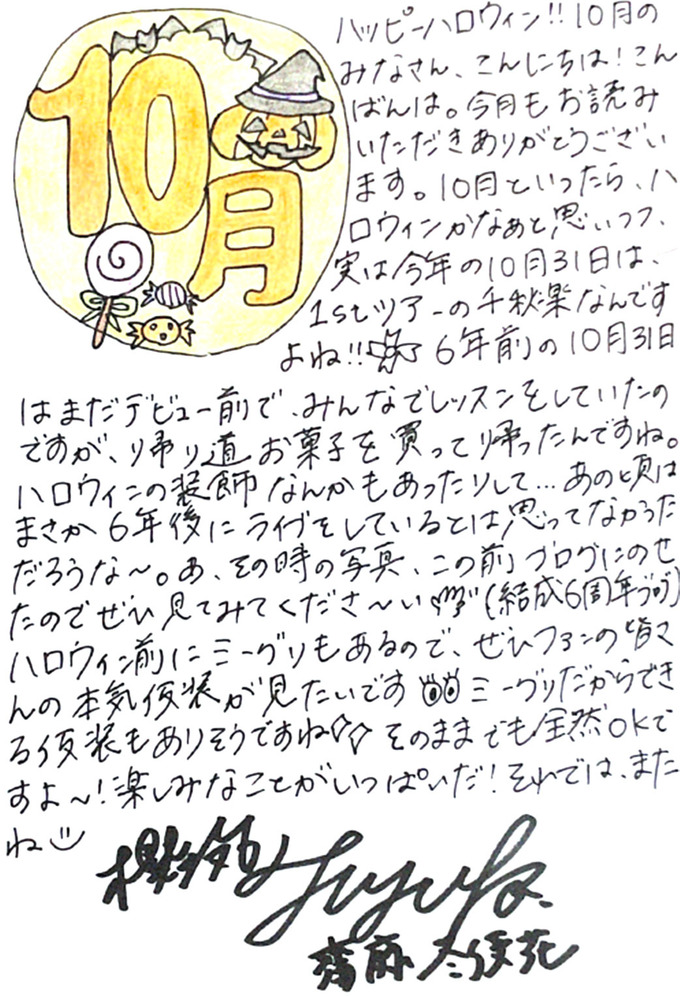 10月
ハッピーハロウィン!!10月の
みなさん、こんにちは!こん
ばんは。今月もお読み
いただきありがとうござい
ます。10月といったら、ハ
ロウィンかなぁと思いつつ、
実は今年の10月31日は、
1stツアーの千秋楽なんです
よね!! 6年前の10月31日
はまだデビュー前で、みんなでレッスンをしていたの
ですが、帰り道お菓子を買って帰ったんですね。
ハロウィンの装飾なんかもあったりして…あの頃は
まさか6年後にライブをしているとは思ってなかった
だろうな〜。あ、その時の写真、この前ブログにのせ
たのでぜひ見てみてくださ〜い(結成6周年ブログ)
ハロウィン前にミーグリもあるので、ぜひファンの皆さ
んの本気仮装が見たいです ミーグリだからでき
る仮装もありそうですね そのままでも全然OKで
すよ〜!楽しみなことがいっぱいだ!それでは、また
ね
櫻坂
fuyuka.
齋藤冬優花